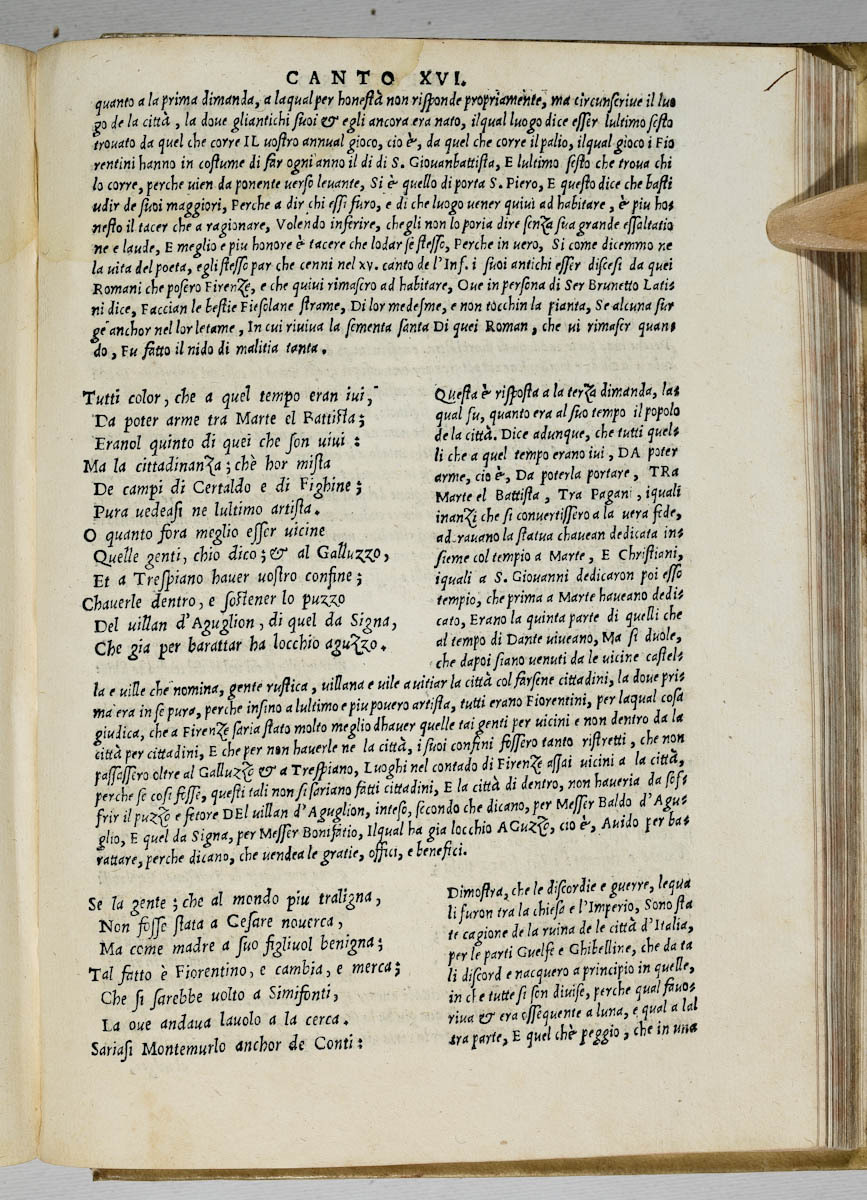 CANTO XVI.
quanto a la prima dimanda, a laqual per honestà non risponde propriamente, ma circunscriue il luo
go de la città, la doue gliantichi suoi & egli ancora era nato, ilqual luogo dice esser lultimo sesto
trouato da quel che corre IL uostro annual gioco, cio è, da quel che corre il palio, ilqual gioco i Fio
rentini hanno in costume di far ogni anno il di di S. Giouanbattista, E lultimo sesto che troua chi
lo corre, perche uien da ponente uerso leuante, Si è quello di porta S. Piero, E questo dice che basti
udir de suoi maggiori, Perche a dir chi essi furo, e di che luogo uener quiui ad habitare, è piu ho=
nesto il tacer che a ragionare, Volendo inferire, chegli non lo poria dire senza sua grande essaltatio
ne e laude, E meglio e piu honore è tacere che lodar se stesso, Perche in uero, Si come dicemmo ne
la uita del poeta, egli stesso par che cenni nel xv. canto de l'Inf. i suoi antichi esser discesi da quei
Romani che posero Firenze, e che quiui rimasero ad habitare, Oue in persona di Ser Brunetto Lati=
ni dice, Faccian le bestie Fiesolane strame, Di lor medesme, e non tocchin la pianta, Se alcuna sur
ge anchor nel lor letame, In cui riuiua la sementa santa Di quei Roman, che ui rimaser quan=
do, Fu fatto il nido di malitia tanta.
Tutti color, che a quel tempo eran iui,
Da poter arme tra Marte el Battista;
Eranol quinto di quei che son uiui:
Ma la cittadinanza; chè hor mista
De campi di Certaldo e di Fighine;
Pura uedeasi ne lultimo artista.
O quanto fora meglio esser uicine
Quelle genti, chio dico; & al Galluzzo,
Et a Trespiano hauer uostro confine;
Chauerle dentro, e sostener lo puzzo
Del uillan d'Aguglion, di quel da Signa,
Che gia per barattar ha locchio aguzzo.
Questa è risposta a la terza dimanda, la=
qual fu, quanto era al suo tempo il popolo
de la città. Dice adunque, che tutti quel=
li che a quel tempo erano iui, DA poter
arme, cio è, Da poterla portare, TRa
Marte el Battista, Tra Pagani, iquali
inanzi che si conuertissero a la uera fede,
adorauano la statua chauean dedicata in=
sieme col tempio a Marte, E Christiani,
iquali a S. Giouanni dedicaron poi esso
tempio, che prima a Marte haueano dedi=
cato, Erano la quinta parte di quelli che
al tempo di Dante uiueano, Ma si duole,
che dapoi siano uenuti da le uicine castel=
la e uille che nomina, gente rustica, uillana e uile a uitiar la città col farsene cittadini, la doue pri=
ma era in se pura, perche insino a lultimo e piu pouero artista, tutti erano Fiorentini, per laqual cosa
giudica, che a Firenze saria stato molto meglio dhauer quelle tai genti per uicini e non dentro da la
città per cittadini, E che per non hauerle ne la città, i suoi confini fossero tanto ristretti, che non
passassero oltre al Galluzzo & a Trespiano, Luoghi nel contado di Firenze assai uicini a la città,
perche se cosi fosse, questi tali non si sariano fatti cittadini, E la città di dentro, non haueria da sof=
frir il puzzo e fetore DEl uillan d'Aguglion, inteso, secondo che dicano, per Messer Baldo d'Agu=
glio, E quel da Signa, per Messer Bonifatio, Ilqual ha gia locchio AGuzzo, cio è, Auido per ba=
rattare, perche dicano, che uendea le gratie, offici, e benefici.
Se la gente; che al mondo piu traligna,
Non fosse stata a Cesare nouerca,
Ma come madre a suo figliuol benigna;
Tal fatto è Fiorentino, e cambia, e merca;
Che si sarebbe uolto a Simifonti,
La oue andaua lauolo a la cerca.
Sariasi Montemurlo anchor de Conti:
Dimostra, che le discordie e guerre, lequa
li furon tra la chiesa e l'Imperio, Sono sta
te cagione de la ruina de le città d'Italia,
per le parti Guelfe e Ghibelline, che da ta
li discord e nacquero a principio in quelle,
in che tutte si son diuise, perche qual fauo=
riua & era ossequente a luna, e qual a lal
tra parte, E quel chè peggio, che in una